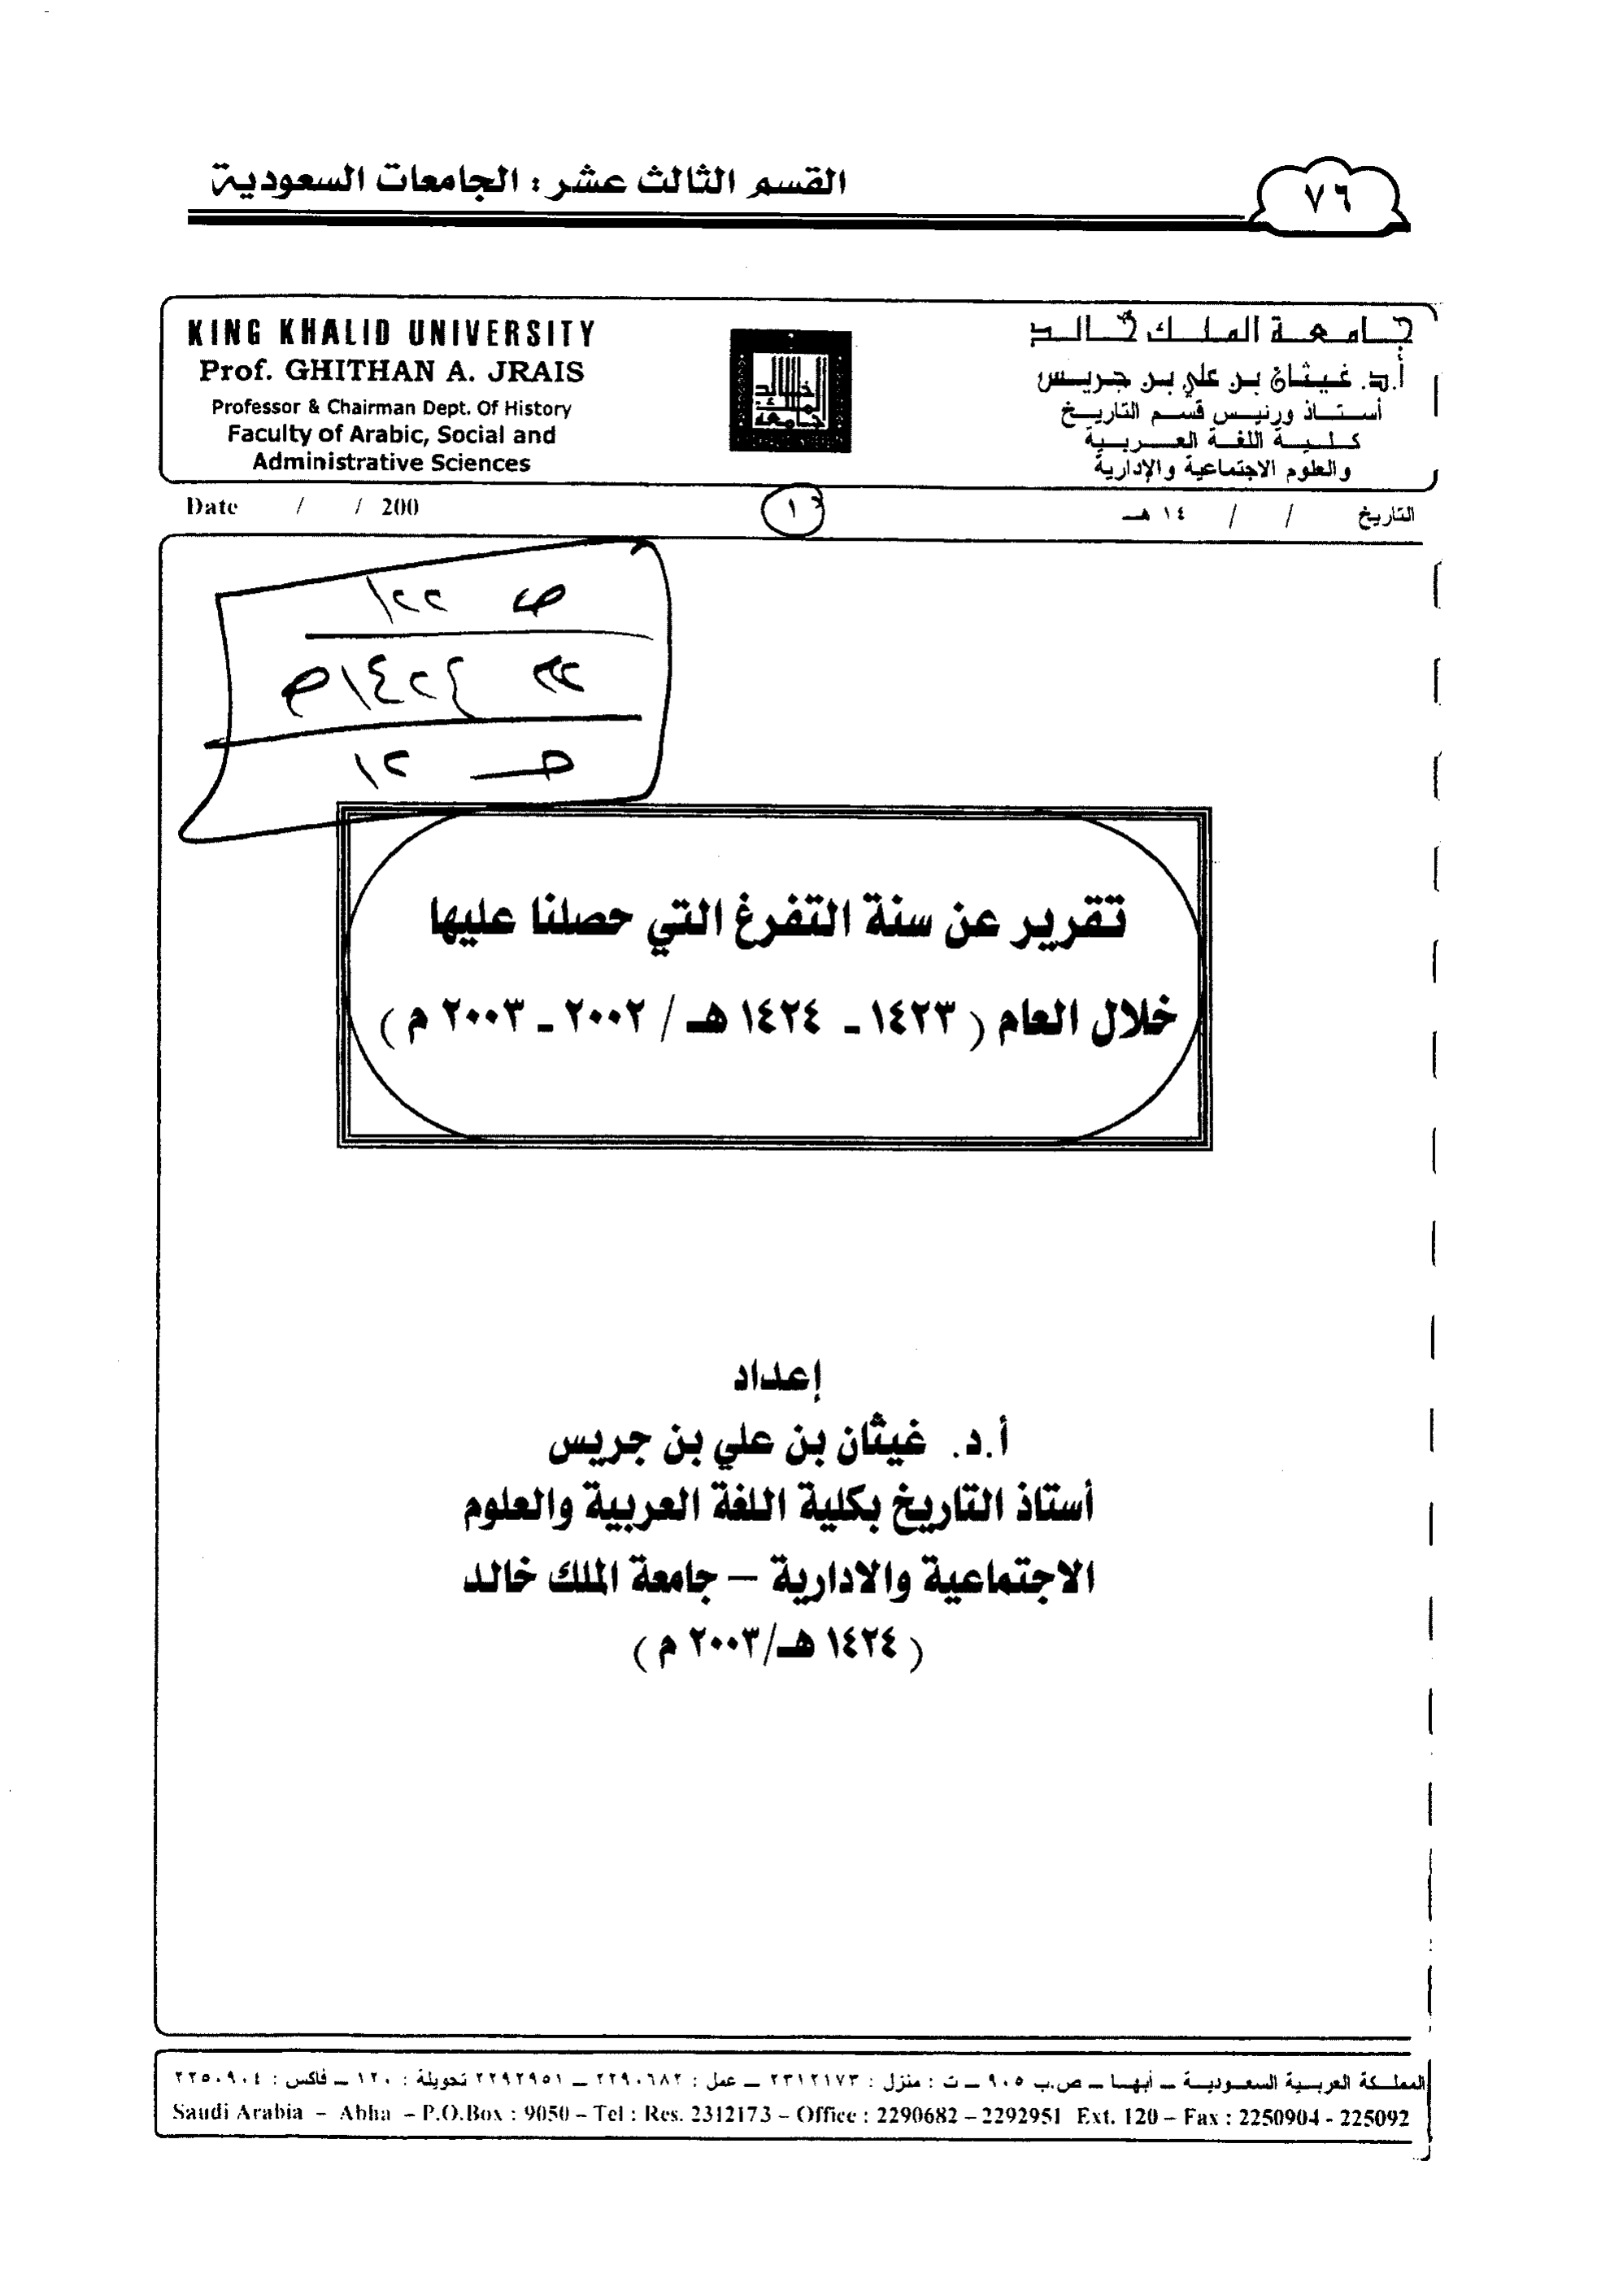 القسم الثالث عشر : الجامعات السعودية
٧٦
KING KHALID UNIVERSITY
Prof. GHITHAN A. JRAIS
Professor & Chairman Dept. Of History
Faculty of Arabic, Social and
Administrative Sciences
جامعة الملك خالد
جامعة الملك خالد
أ.د. غيثان بن علي بن جريس
أستاذ ورئيس قسم التاريخ
كلية اللغة العربية
والعلوم الاجتماعية والإدارية
Date / / 200
التاريخ / / ١٤ هـ
ص ١٢٢
١٢
تقرير عن سنة التفرغ التي حصلنا عليها
خلال العام ( ١٤٢٣ - ١٤٢٤ هـ / ٢٠٠٢ - ٢٠٠٣ م )
إعداد
أ.د. غيثان بن علي بن جريس
أستاذ التاريخ بكلية اللغة العربية والعلوم
الاجتماعية والادارية – جامعة الملك خالد
( ١٤٢٤ هـ/٢٠٠٣ م )
المملكة العربية السعودية – أبها – ص.ب ٩٠٥ – ت : منزل : ٢٣١٢١٧٣ – عمل : ٢٢٩٠٦٨٢ – ٢٢٩٢٩٥١ تحويلة : ١٢٠ – فاكس : ٢٢٥٠٩٠٤
Saudi Arabia – Abha – P.O.Box : 9050 – Tel : Res. 2312173 – Office : 2290682 – 2292951 Ext. 120 – Fax : 2250904 - 225092